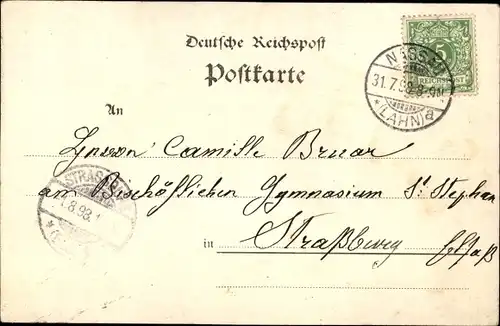 Deutsche Reichspost
Postkarte
5
REICHSPOST
NASSAU
31.7.98.8-9N
* (LAHN) a
An
Camille Bruar
am Bischöflichen Gymnasium St. Stephan
STRASSB
.8.98.
in Straßburg Elsaß